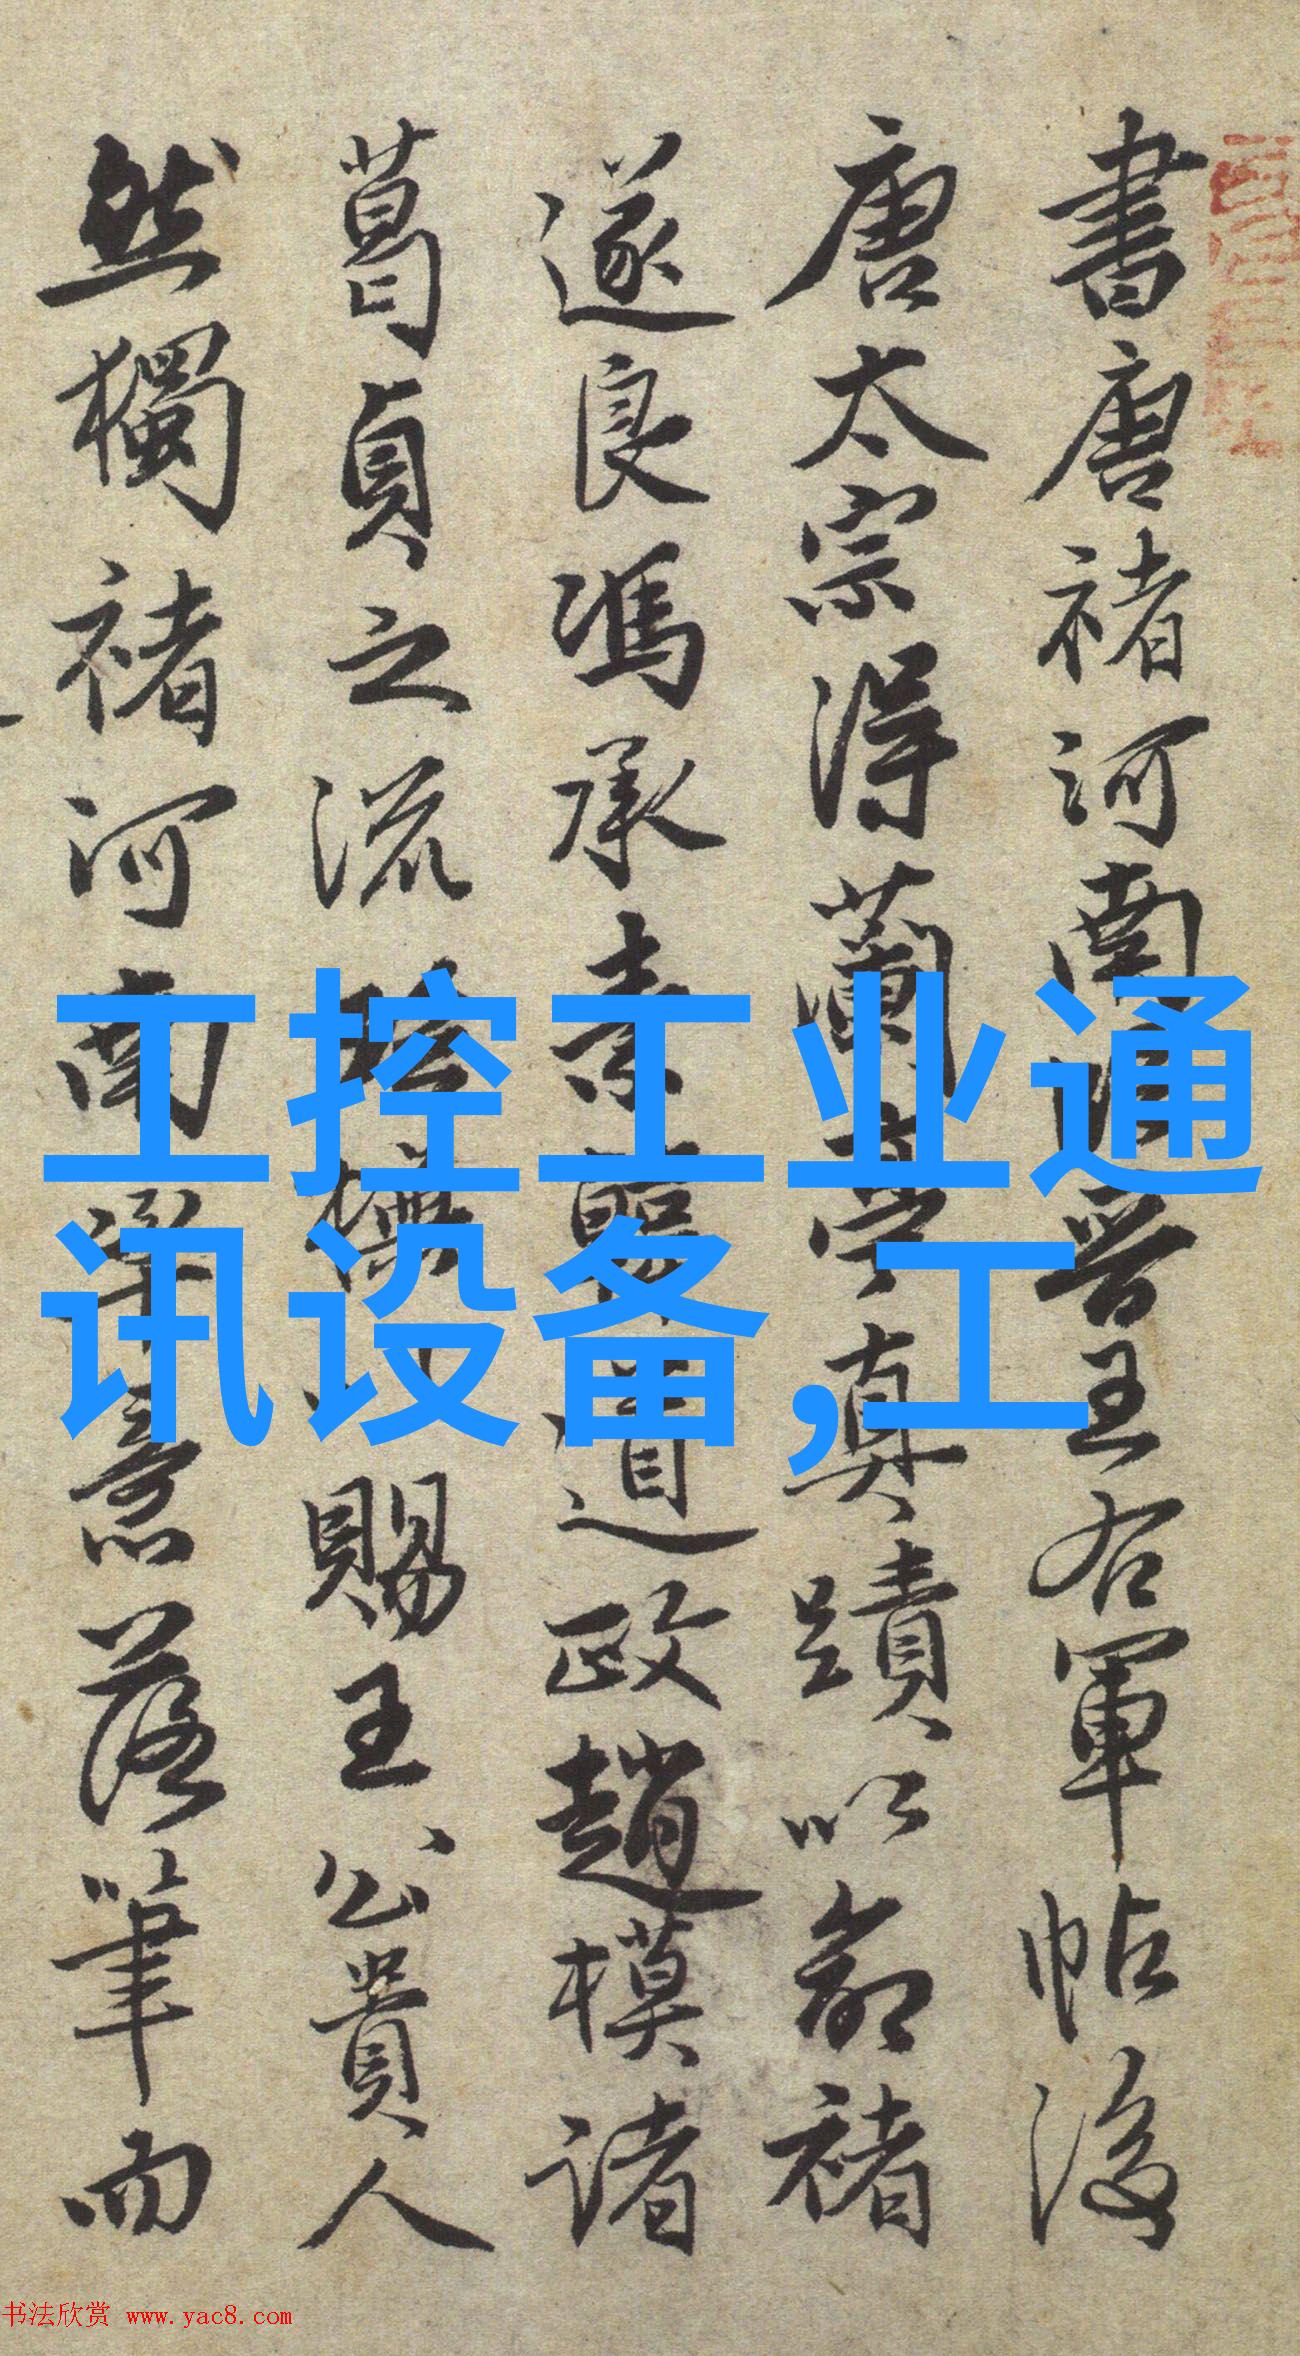 書唐褚河南臨晉王右軍帖後
唐太宗得蘭亭真蹟以命褚
遂良馮承素韓道政趙模諸
葛貞之流
賜王公貴人
然獨褚河南
意落筆而
工控工业通
讯设备,工
书法欣赏 www.yac8.com